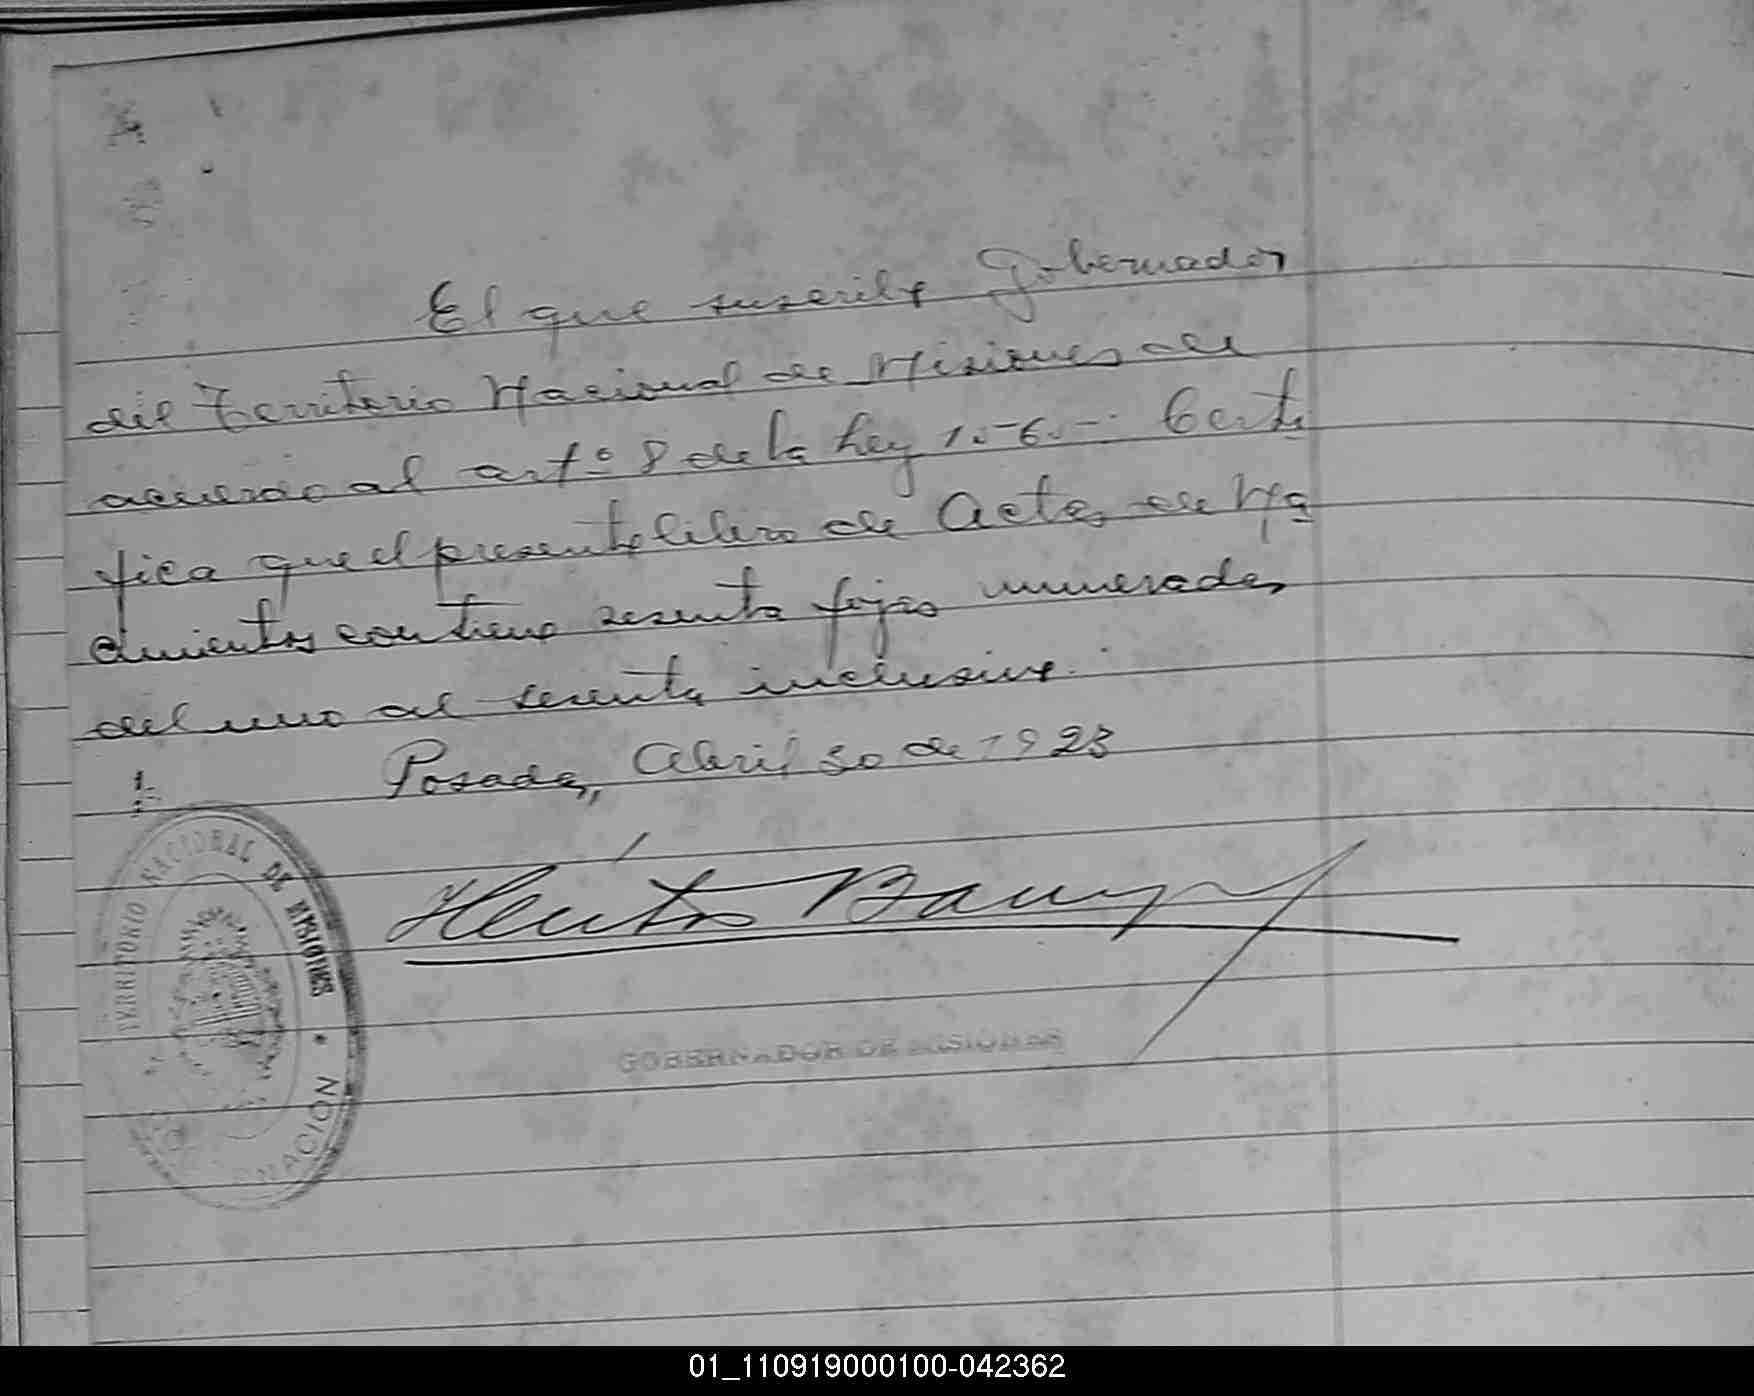 El que suscribe Gobernador
del Territorio Nacional de Misiones de
acuerdo al artº 8 de la Ley 1565: Certi
fica que el presente libro de Actas de Na
cimientos contiene sesenta fojas numeradas
del uno al sesenta inclusive.
Posadas, Abril 30 de 1923
Héctor Barreyro
TERRITORIO NACIONAL DE MISIONES
GOBERNADOR DE MISIONES
01_110919000100-042362